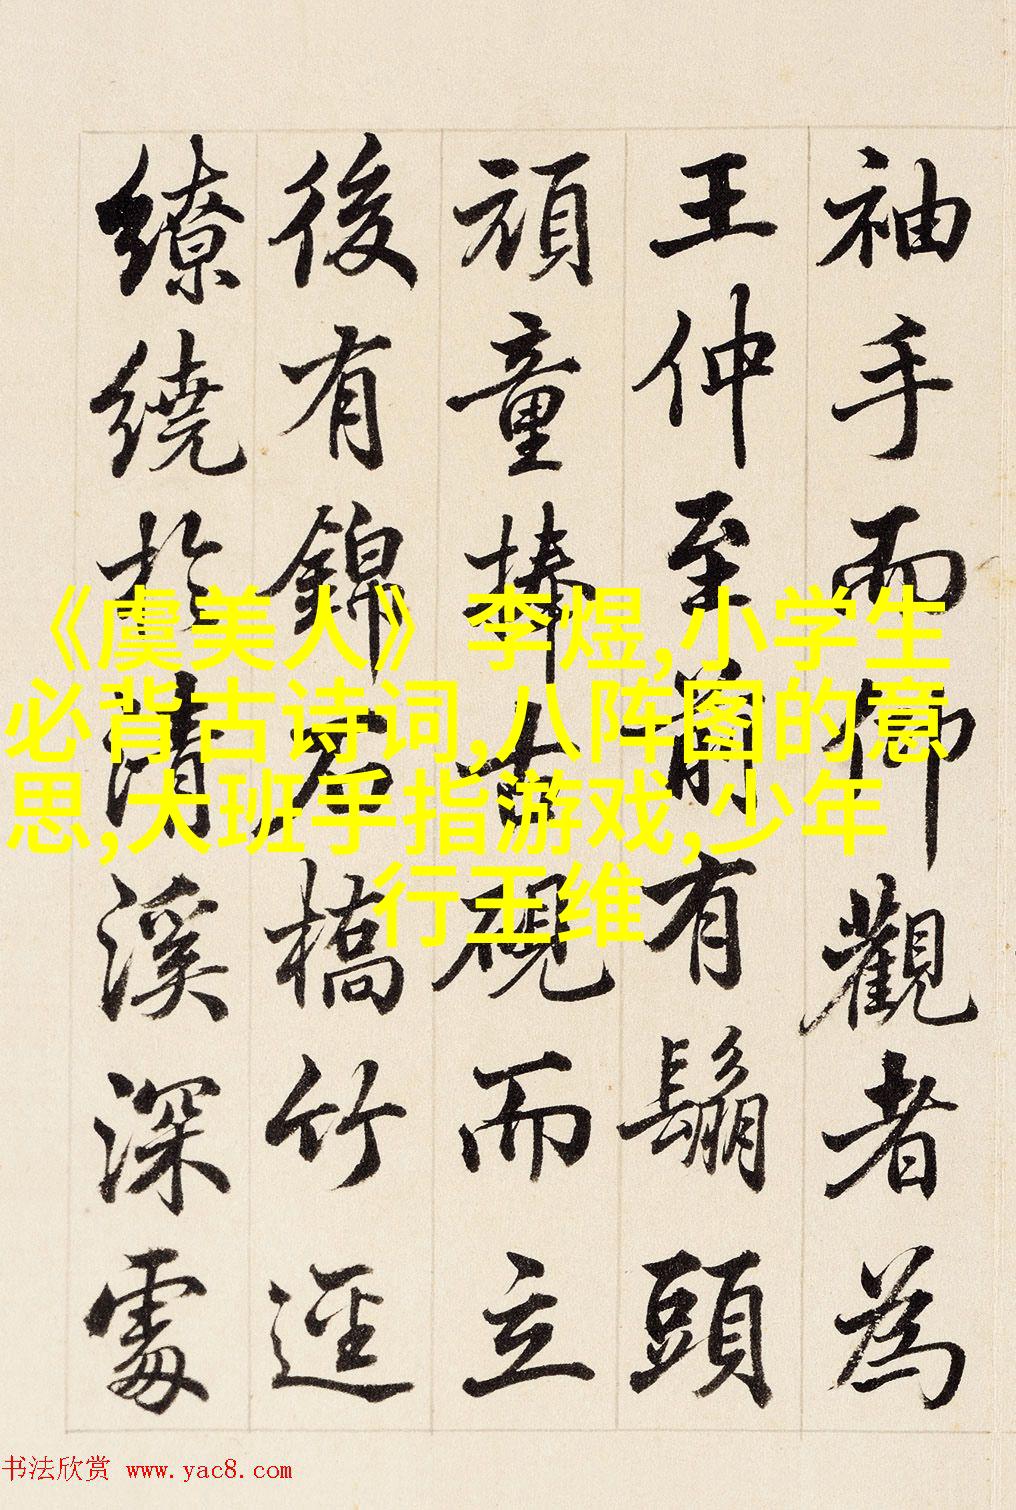 袖手而仰觀者為
王仲至前有鬅頭
頑童捧古硯而立
後有錦石橋竹逕
繚繞於清溪深處
《虞美人》李煜,小学生
必背古诗词,八阵图的意
思,大班手指游戏,少年
行王维
书法欣赏 www.yac8.com